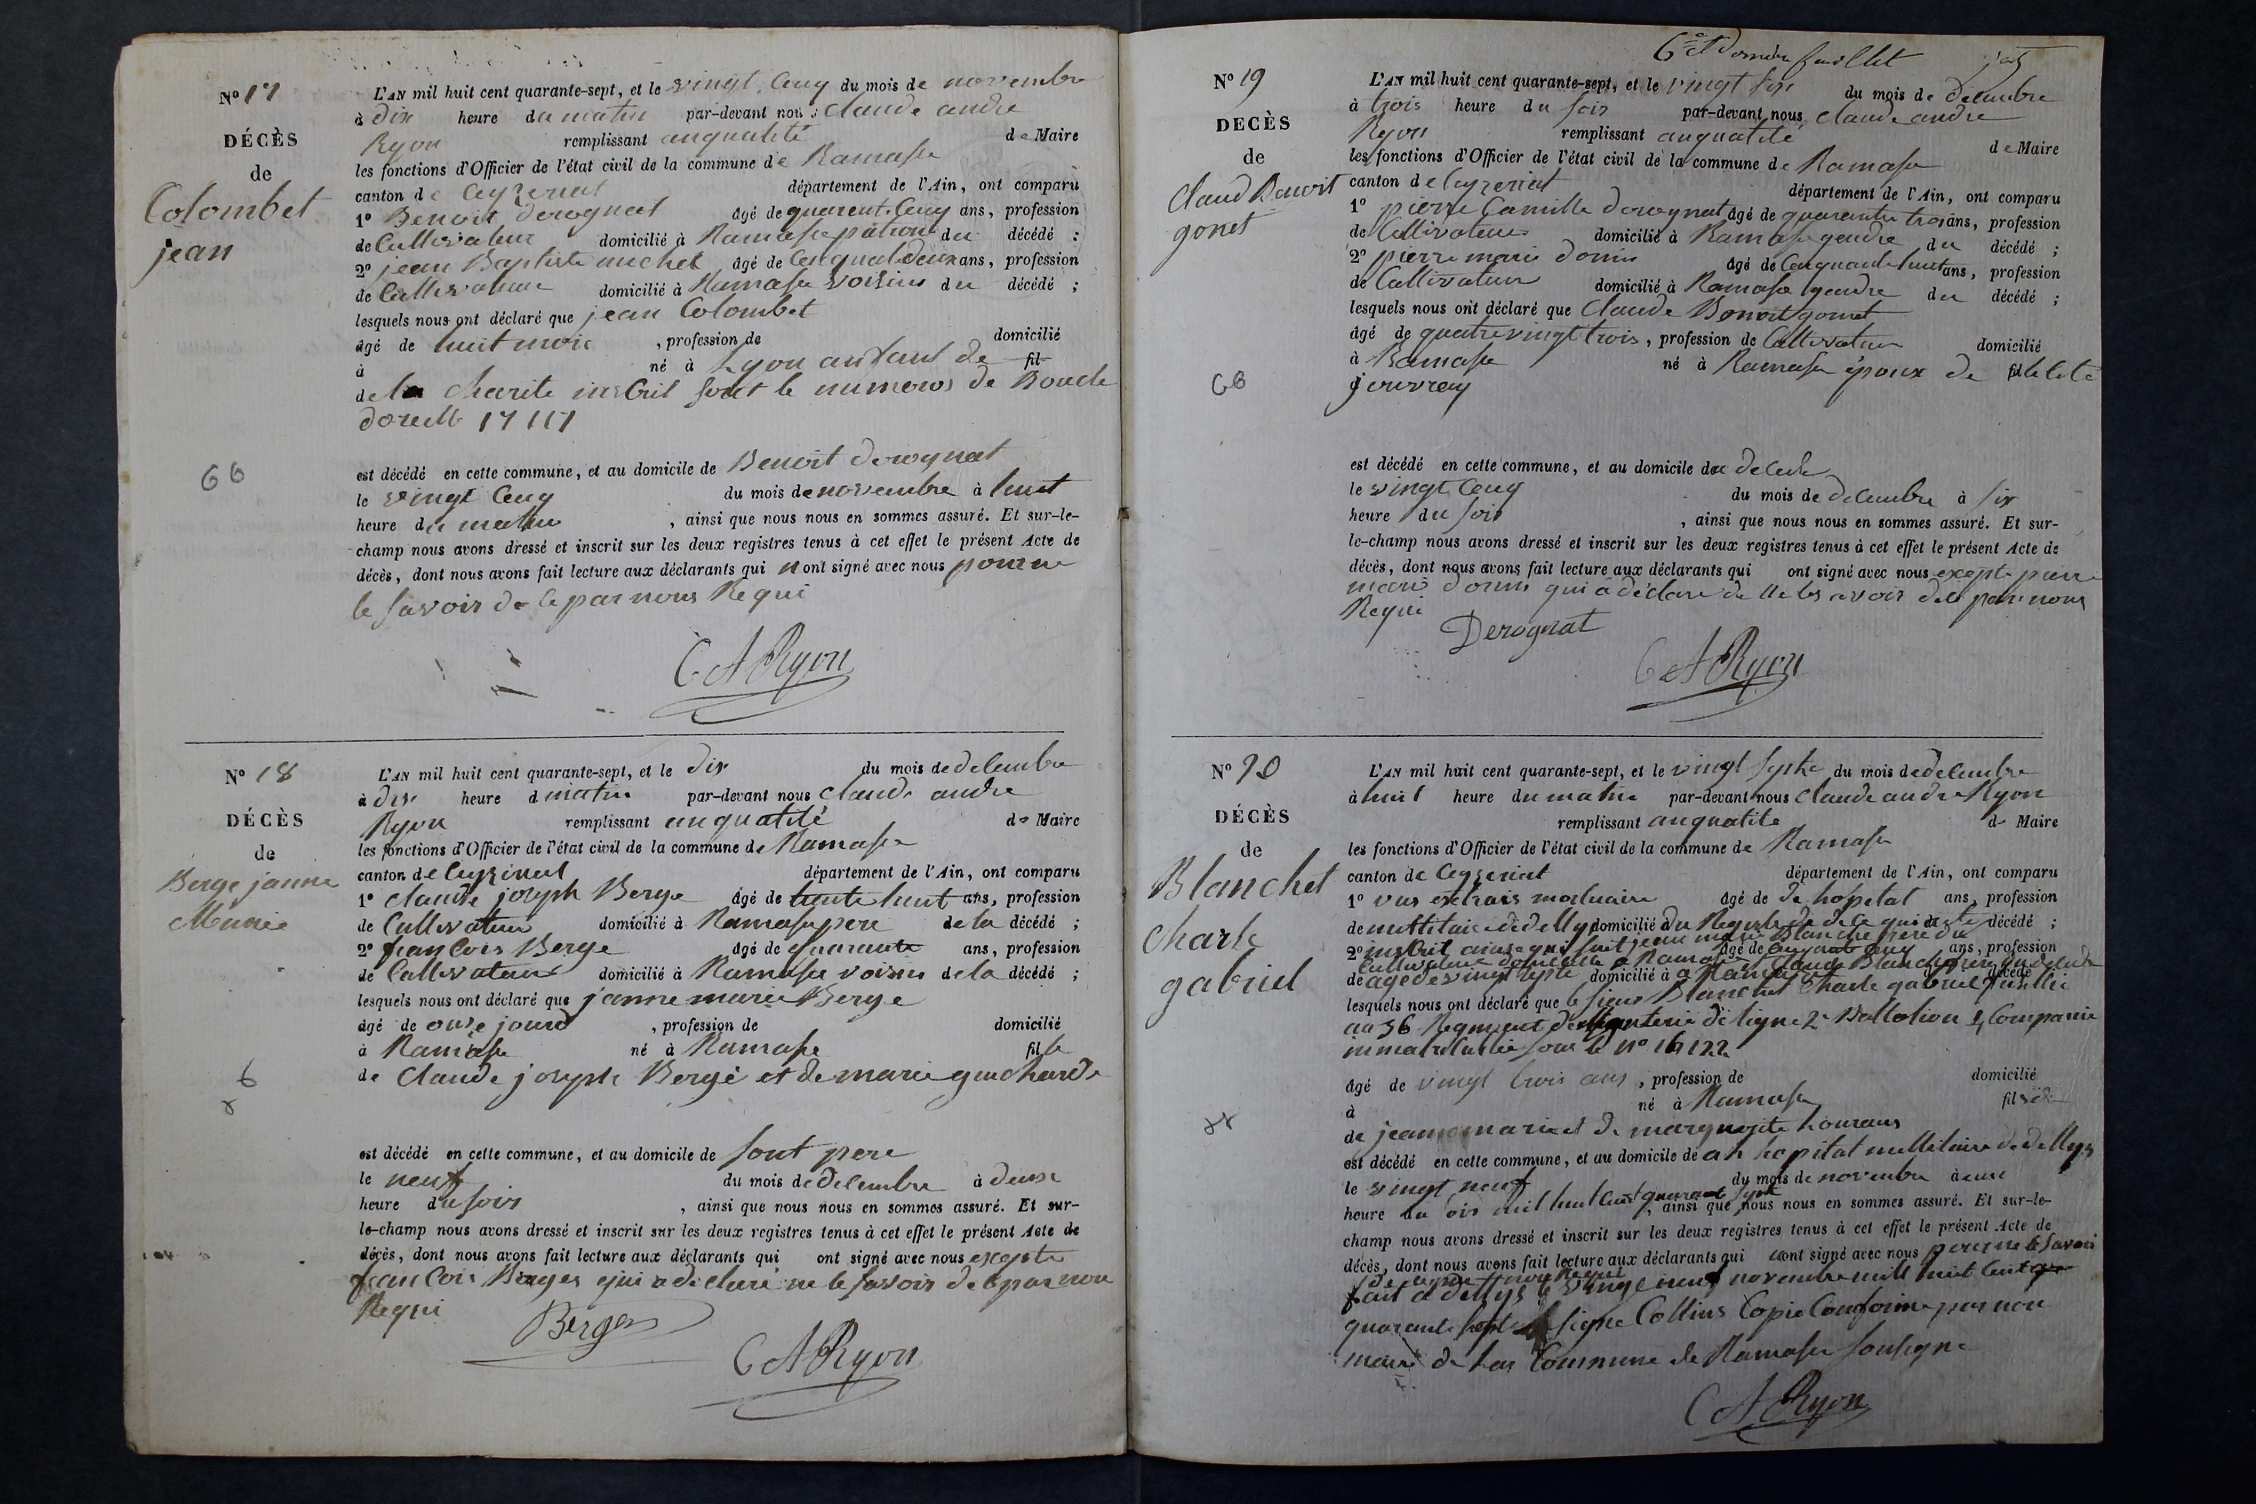 No 17
DÉCÈS
de
Colombet
jean
L'AN mil huit cent quarante-sept, et le vingt cenq du mois de novembre
à dix heure du matin par-devant nous claude andre
Ryon remplissant anqualité de Maire
les fonctions d'Officier de l'état civil de la commune de Ramasse
canton de Ceyzeriat département de l'Ain, ont comparu
1o Benoit derognat âgé de quarent cenq ans, profession
de Cultivateur domicilié à Ramasse patron du décédé ;
2o jean Baptiste michel âgé de ans, profession
de Cultivateur domicilié à Ramasse voisins du décédé ;
lesquels nous ont déclaré que jean Colombet
âgé de huit mois , profession de domicilié
à né à Lyon anfant de fil
de la charite inscrit sout le numeros de Boucle
doreille 17117
est décédé en cette commune, et au domicile de Benoit derognat
le vingt cenq du mois de novembre à huit
heure du matin , ainsi que nous nous en sommes assuré. Et sur-le-
champ nous avons dressé et inscrit sur les deux registres tenus à cet effet le présent Acte de
décès, dont nous avons fait lecture aux déclarants qui n ont signé avec nous pour ne
le savoir de ce par nous Requi
C A Ryon
No 18
DÉCÈS
de
Berge janne
Marie
L'AN mil huit cent quarante-sept, et le dix du mois de decembre
à dix heure d matin par-devant nous claude andre
Ryon remplissant anqualité de Maire
les fonctions d'Officier de l'état civil de la commune de Ramasse
canton de Ceyzeriat département de l'Ain, ont comparu
1o claude joseph Berge âgé de trente huit ans, profession
de Cultivateur domicilié à Ramasse pere de la décédé ;
2o francois Berge âgé de quarante ans, profession
de Cultivateur domicilié à Ramasse voisin de la décédé ;
lesquels nous ont déclaré que janne marie Berge
âgé de onse jours , profession de domicilié
à Ramasse né à Ramasse fille
de Claude joseph Berge et de marie guichard
est décédé en cette commune, et au domicile de sont pere
le neuf du mois de decembre à deux
heure du soir , ainsi que nous nous en sommes assuré. Et sur-
le-champ nous avons dressé et inscrit sur les deux registres tenus à cet effet le présent Acte de
décès, dont nous avons fait lecture aux déclarants qui ont signé avec nous excepte
francois Berger qui a declaré ne le savoir de ce par nou
Requi
Berger
C A Ryon
6e et dernier feuillet
No 19
DECÈS
de
Claud Benoit
gonet
L'AN mil huit cent quarante-sept, et le vingt six du mois de decembre
à trois heure du soir par-devant nous claude andre
Ryon remplissant anqualité de Maire
les fonctions d'Officier de l'état civil de la commune de Ramasse
canton de Ceyzeriat département de l'Ain, ont comparu
1o pierre Camille derognat âgé de quarante trois ans, profession
de Cultivateur domicilié à Ramasse gendre du décédé ;
2o pierre marie âgé de Cenquante huit ans, profession
de Cultivateur domicilié à Ramasse gendre du décédé ;
lesquels nous ont déclaré que Claude Benoit gonet
âgé de quatrevingt trois , profession de Cultivateur domicilié
à Ramasse né à Ramasse époux de fil
jouvray
est décédé en cette commune, et au domicile du decede
le vingt Cenq du mois de decembre à six
heure du soir , ainsi que nous nous en sommes assuré. Et sur-
le-champ nous avons dressé et inscrit sur les deux registres tenus à cet effet le présent Acte de
décès, dont nous avons fait lecture aux déclarants qui ont signé avec nous excepte pierre
marie qui a déclare de ne le savoir de ce par nous
Requi
Derognat
C A Ryon
No 20
DÉCÈS
de
Blanchet
Charle
gabriel
L'AN mil huit cent quarante-sept, et le vingt septe du mois de decembre
à huit heure du matin par-devant nous Claude andre Ryon
remplissant anqualite de Maire
les fonctions d'Officier de l'état civil de la commune de Ramasse
canton de Ceyzeriat département de l'Ain, ont comparu
1o vus extrais mortuaire âgé de de hopital ans, profession
de millitaire de dellys domicilié du Registre de ce qui décédé ;
2o inscrit ainse qui suit jean marie Blanchet pere du âgé de ans, profession
Cultivateur domicilié a Ramasse Claude Blanchet
de age de vingt septe domicilié à a Ramasse décédé ;
lesquels nous ont déclaré que le sieur Blanchet Charle gabriel fusillie
au 36 Regiment d'infanterie de ligne 2e Battalion Companie
immatriculee sous le No 16122
âgé de vingt trois ans , profession de domicilié
à né à Ramasse fils de
de jean marie et de marguerite
est décédé en cette commune, et au domicile de an hopital millitaire de dellys
le vingt neuf du mois de novembre à une
heure du mil huit cent quarant sept , ainsi que nous nous en sommes assuré. Et sur-le-
champ nous avons dressé et inscrit sur les deux registres tenus à cet effet le présent Acte de
décès, dont nous avons fait lecture aux déclarants qui n ont signé avec nous pour ne le savoir
de ce par nous Requi
fait a dellys le vingt neuf novembre mill huit cent
quarante sept signe Collins Copie Conforme par nou
maire de las Commune de Ramasse soussigne
C A Ryon